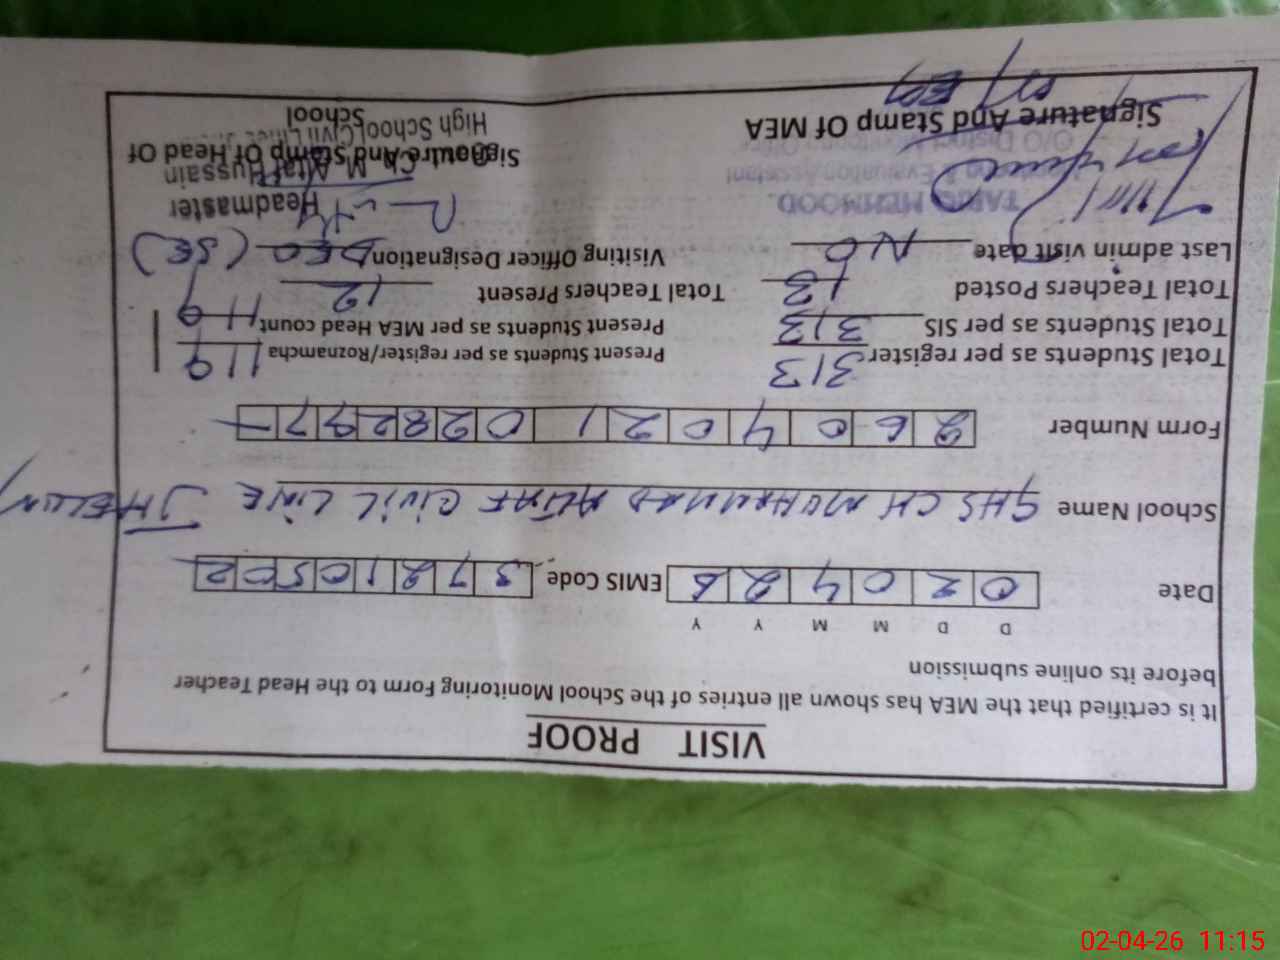 VISIT PROOF
It is certified that the MEA has shown all entries of the School Monitoring Form to the Head Teacher
before its online submission
D D M M Y Y
Date 0 2 0 4 2 6 EMIS Code 3 7 2 1 0 5 0 2
School Name GHS CH MUHAMMAD ALTAF CIVIL LINE JHELUM
Form Number 2 6 0 4 0 2 1 0 2 8 2 9 7
Total Students as per register 313 Present Students as per register/Roznamcha 119
Total Students as per SIS 313 Present Students as per MEA Head count 119
Total Teachers Posted 13 Total Teachers Present 12
Last admin visit date NO Visiting Officer Designation DEO (SE)
TARIQ MEHMOOD
Monitoring & Evaluation Assistant
O/O District
Signature And Stamp Of MEA
Headmaster
Ch. M. Altaf Hussain
Signature And Stamp Of Head Of
High School, Civil Lines
School
02-04-26 11:15